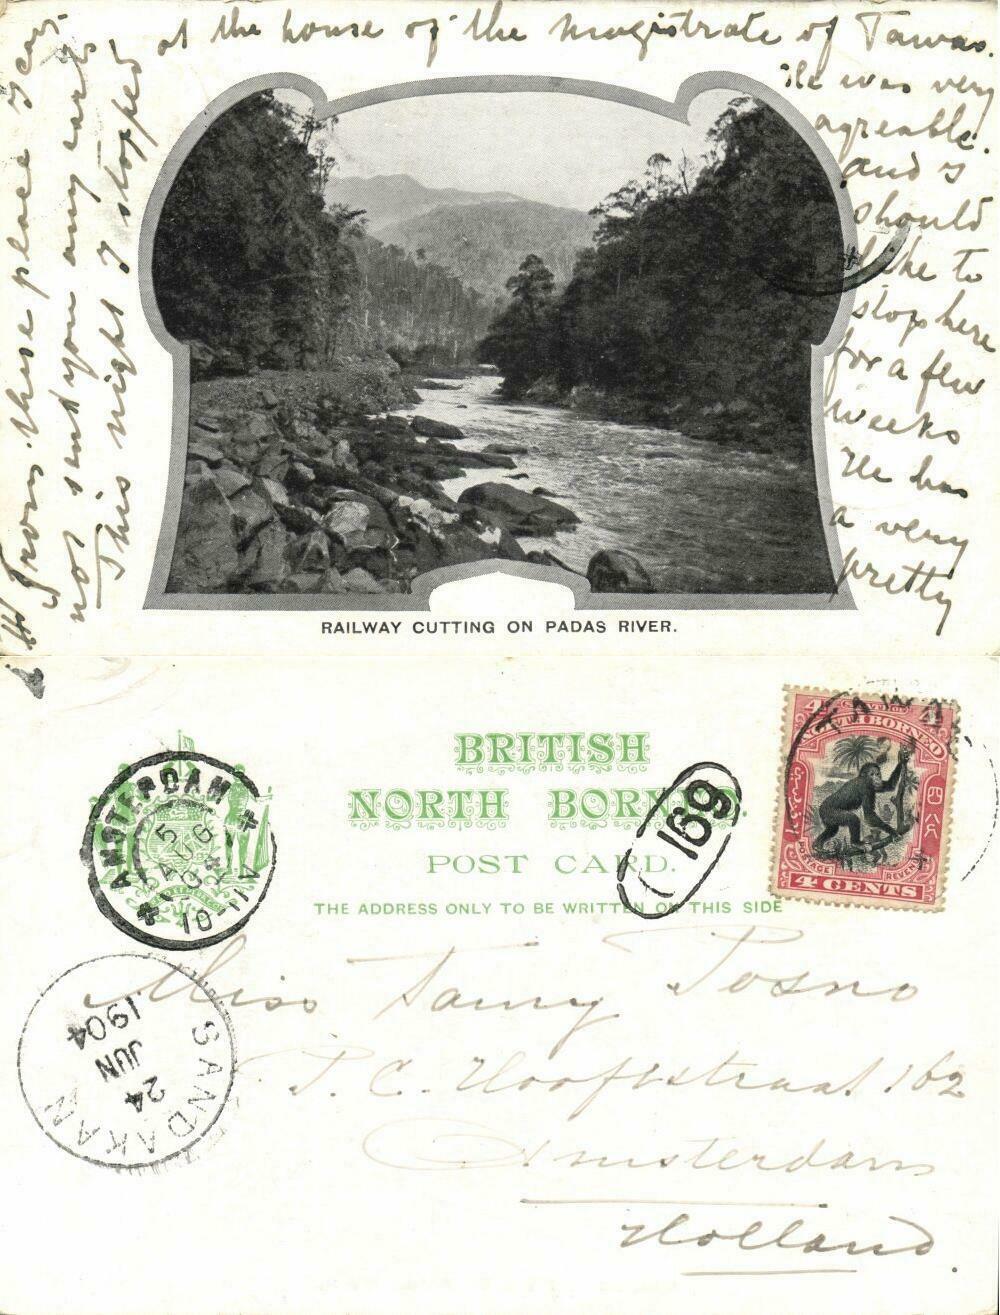 From these place I can
not send you any cards
This night I stopped
at the house of the magistrate of Tawao.
He was very
agreable.
and I
should
like to
stop here
for a few
weeks
He has
a very
pretty
RAILWAY CUTTING ON PADAS RIVER.
BRITISH
NORTH BORNEO
POST CARD.
THE ADDRESS ONLY TO BE WRITTEN ON THIS SIDE
AMSTERDAM
5 AUG
10-11V
169
TAWAO
NORTH BORNEO
POSTAGE
REVENUE
4 CENTS
SANDAKAN
24
JUN
1904
Miss Tanny Posno
P. C. Hooftstraat 162
Amsterdam
Holland.